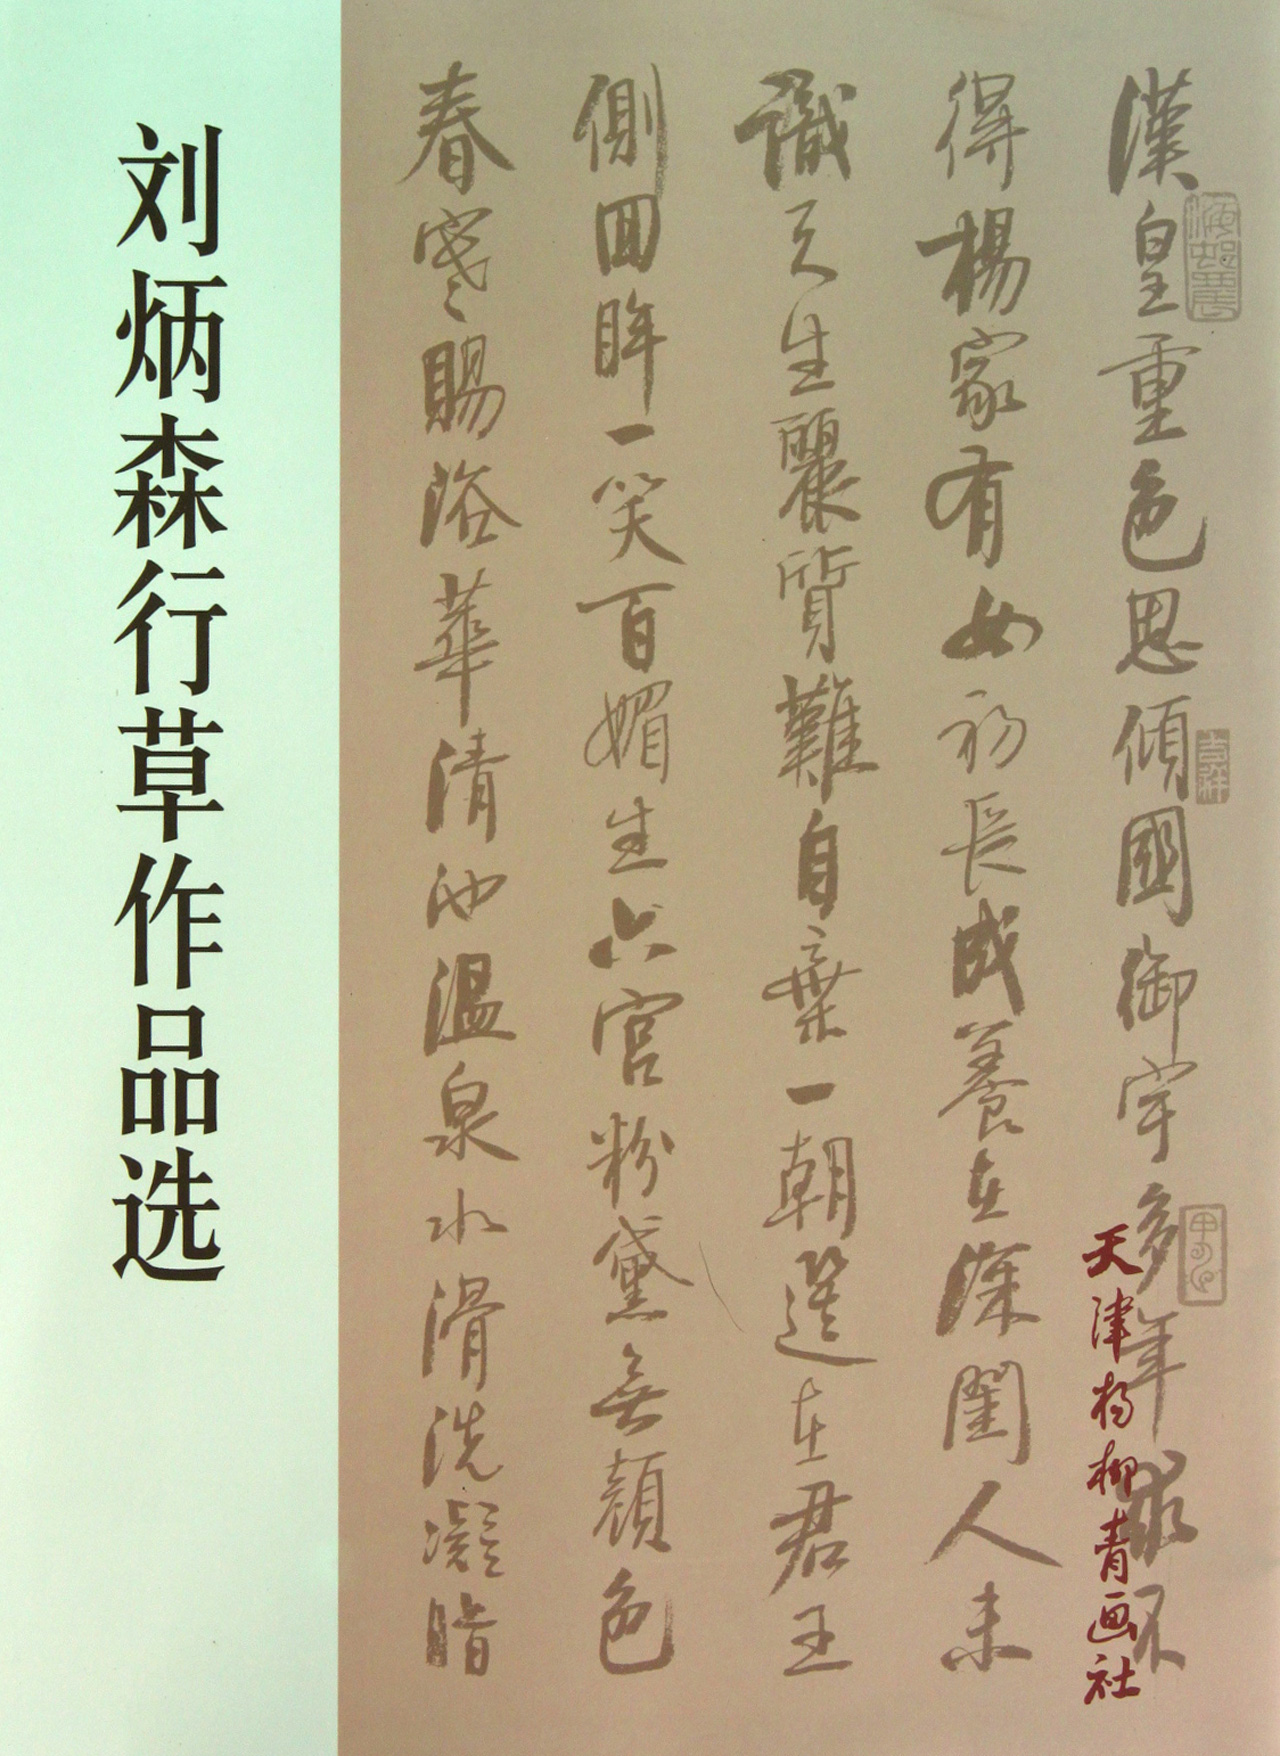 刘炳森行草作品选
漢皇重色思傾國御宇多年求不
得楊家有女初長成養在深閨人未
識天生麗質難自棄一朝選在君王
側回眸一笑百媚生六宮粉黛無顔色
春寒賜浴華清池溫泉水滑洗凝脂
吉祥
天津杨柳青画社